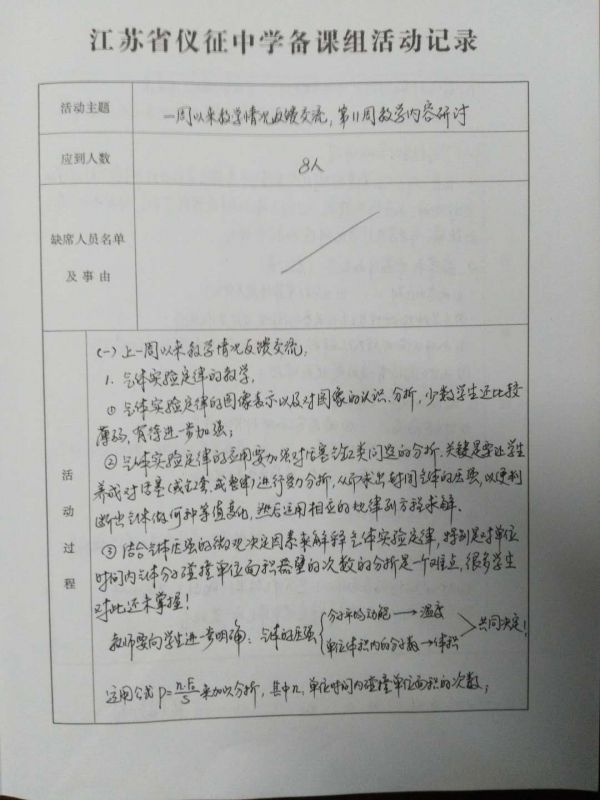 江苏省仪征中学备课组活动记录
活动主题
一周以来教学情况反馈交流,第11周教学内容研讨
应到人数
8人
缺席人员名单
及事由
活动过程
(一)上一周以来教学情况反馈交流:
1. 气体实验定律的教学,
① 气体实验定律的图象表示以及对图象的认识、分析,少数学生还比较
薄弱,有待进一步加强;
② 气体实验定律的应用要加强对活塞气缸类问题的分析.关键是要让学生
养成对活塞(或气缸、或整体)进行受力分析,从而求出封闭气体的压强,以便判
断出气体做何种等值变化,然后运用相应的规律列方程求解.
③ 结合气体压强的微观决定因素来解释气体实验定律,特别是对单位
时间内气体分子碰撞单位面积器壁的次数的分析是一个难点,很多学生
对此还未掌握!
教师要向学生进一步明确:气体的压强{分子平均动能→温度
单位体积内的分子数→体积>共同决定!
运用公式 P= 来加以分析,其中n:单位时间内碰撞单位面积的次数;